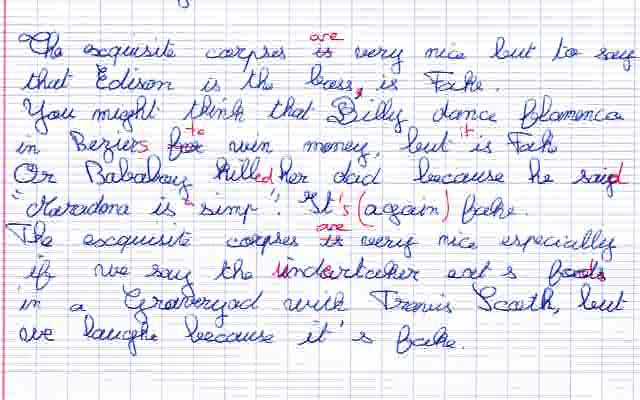 The exquisite corpses is are very nice but to say
that Edison is the boss, is Fake.
You might think that Billy dance flamenco
in Beziers to win money, but it is Fak
Or Bababoy killed her dad because he said
"Maradona is a simp". It's (again) fake.
The exquisite corpses is are very nice especially
if we say the undertaker eats foods
in a Graveryad with Travis Scoth, but
we laughe because it's fake.